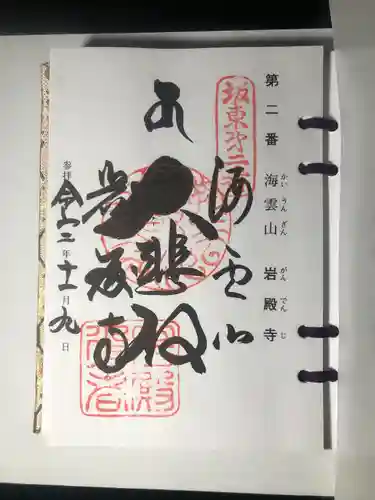 第二番 海雲山 岩殿寺
かいうんざん がんでんじ
坂東第二
海雲山
大悲殿
岩殿寺
参拝 令和二年十一月九日